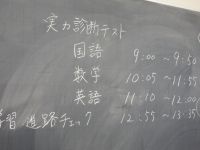 実力診断テスト
国語 9:00 ~ 9:50
数学 10:05 ~ 11:55
英語 11:10 ~ 12:00
学習 進路チェック 12:55 ~ 13:35